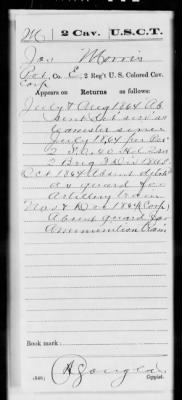 M | 2 Cav. | U.S.C.T.
Jas Morris
Pvt, Co. E, 2 Reg't U. S. Colored Cav.
Corp
Appears on Returns as follows:
July & Aug 1864 Ab
sent det serv as
teamster since
July 1864 per
2 Brig 3 Div 18 AC
Oct 1864 Absent detch
as guard for
Artillery train
Nov & Dec 1864 (Corp)
Absent guard for
Ammunition train
Book mark:
(546)
Copyist.